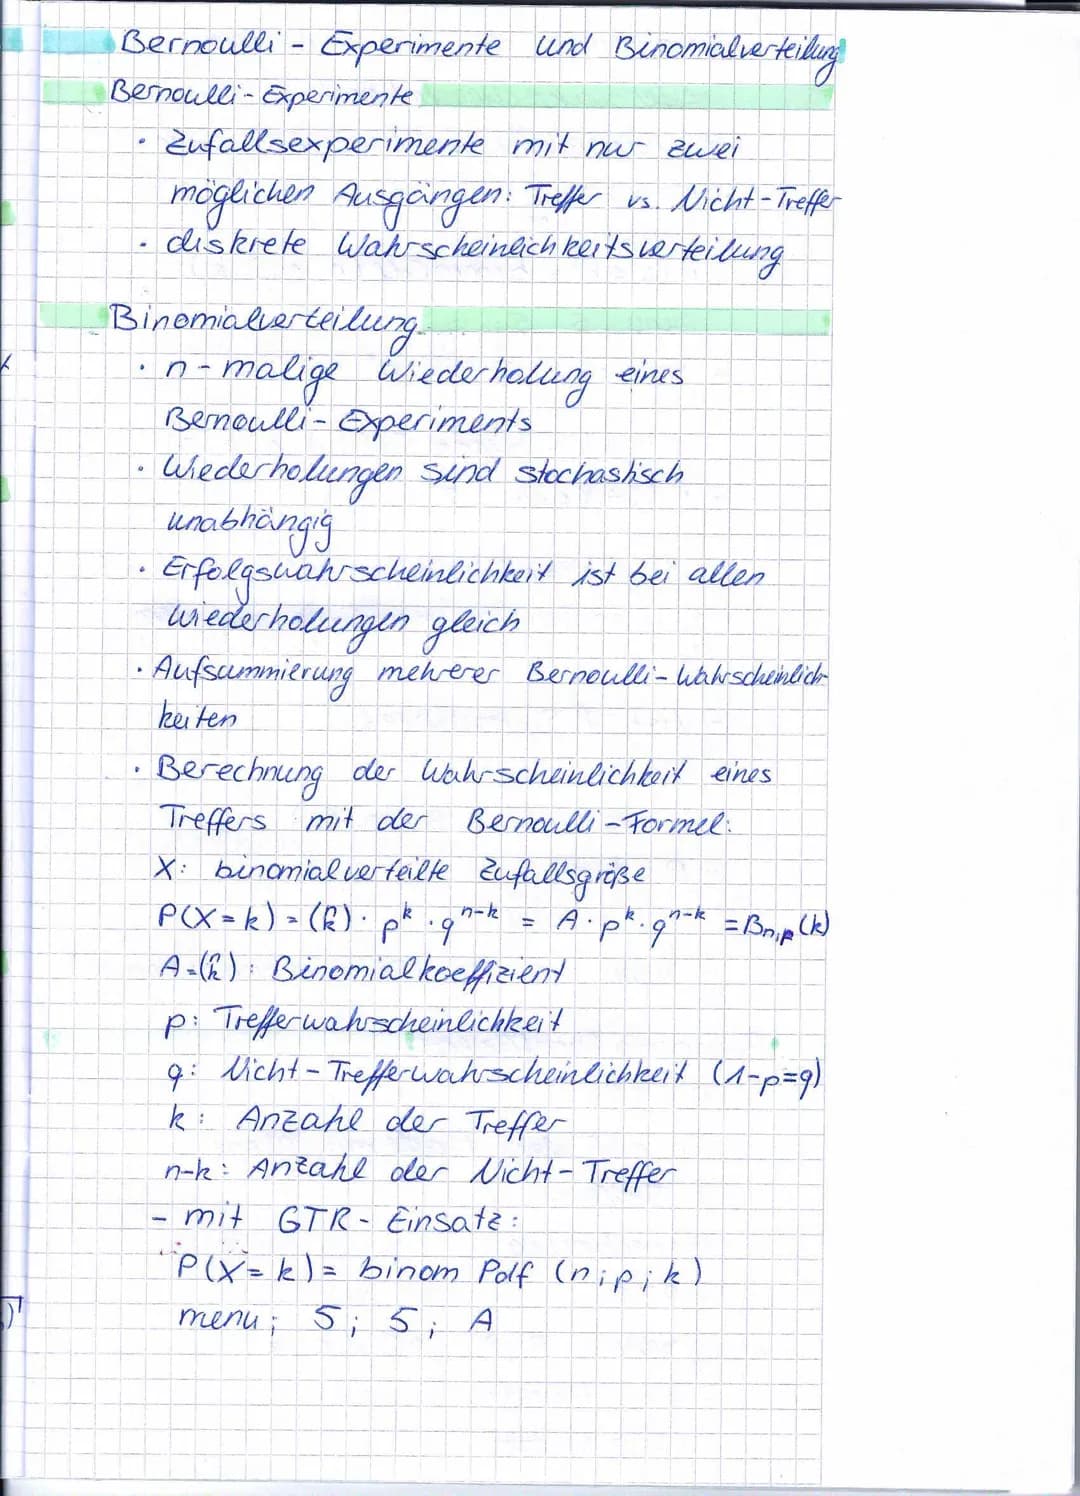 Bernoulli - Experimente und Binomialverteilung
Bernoulli - Experimente
· Zufallsexperimente mit nur zwei
möglichen Ausgängen: Treffer vs. Nicht-Treffer
· diskrete Wahrscheinlichkeitsverteilung
Binomialverteilung
· n-malige Wiederholung eines
Bernoulli - Experiments
· Wiederholungen sind stochastisch
unabhängig
· Erfolgswahrscheinlichkeit ist bei allen
Wiederholungen gleich
· Aufsummierung mehrerer Bernoulli-Wahrscheinlich-
keiten
· Berechnung der Wahrscheinlichkeit eines
Treffers mit der Bernoulli-Formel:
X: binomialverteilte Zufallsgröße
P(X=k) = (n k) · p^k · q^(n-k) = A · p^k · q^(n-k) = B_n;p (k)
A = (n k) : Binomialkoeffizient
p: Trefferwahrscheinlichkeit
q: Nicht-Trefferwahrscheinlichkeit (1-p=q)
k: Anzahl der Treffer
n-k: Anzahl der Nicht-Treffer
- mit GTR - Einsatz:
P(X=k) = binom Pdf (n;p;k)
menu; 5; 5; A